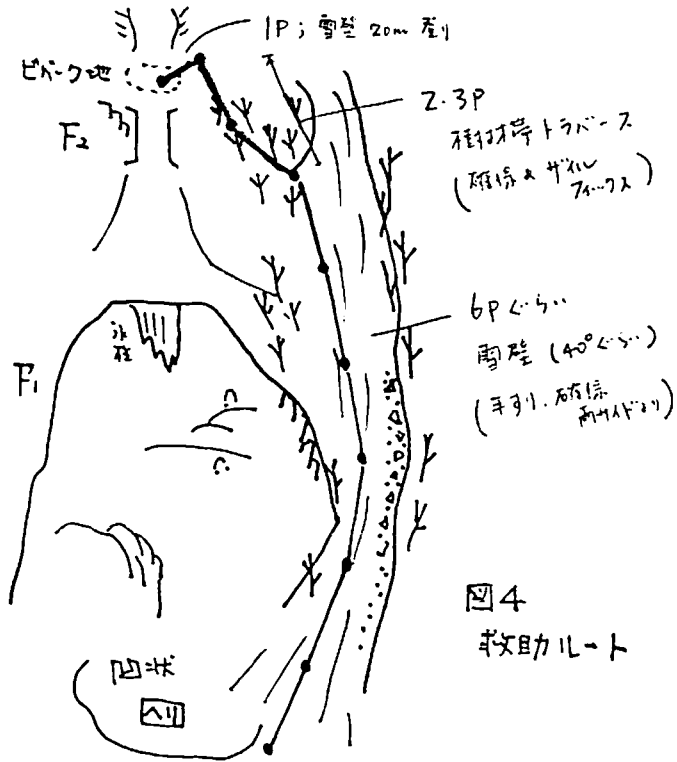 1P；雪壁 20m 登り
ビバーク地
F2
2.3P
樹林帯トラバース
(確保&ザイル
フィックス)
6Pぐらい
雪壁 (40°ぐらい)
(手すり、確保
両サイドより)
F1
氷柱
凹状
ヘリ
図4
救助ルート